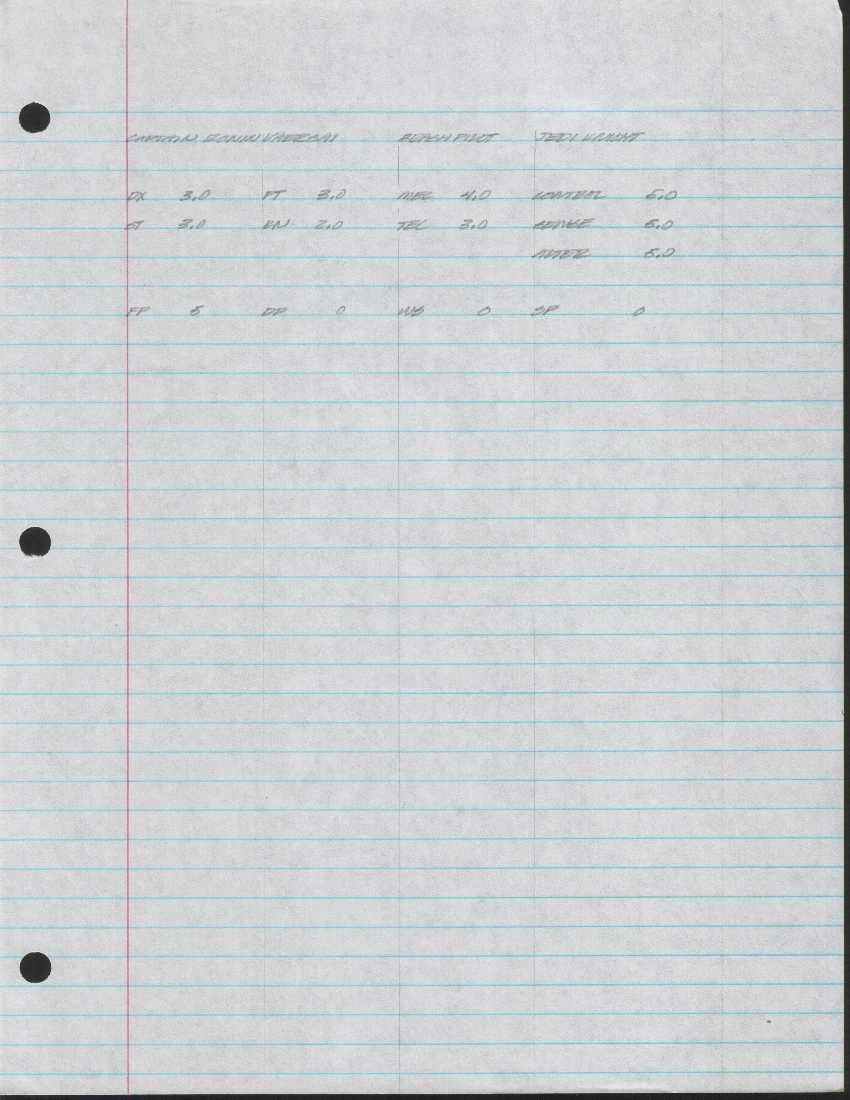 CAPTAIN RONIN PILOT JEDI KNIGHT
DX 3.0 FT 3.0 MEC 4.0 CONTROL 5.0
ST 3.0 KN 2.0 TEC 3.0 SENSE 5.0
ALTER 5.0
FP 5 DP 0 WS 0 SP 0